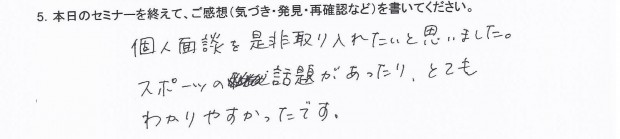 5. 本日のセミナーを終えて、ご感想(気づき・発見・再確認など)を書いてください。
個人面談を是非取り入れたいと思いました。
スポーツの話題があったり、とても
わかりやすかったです。